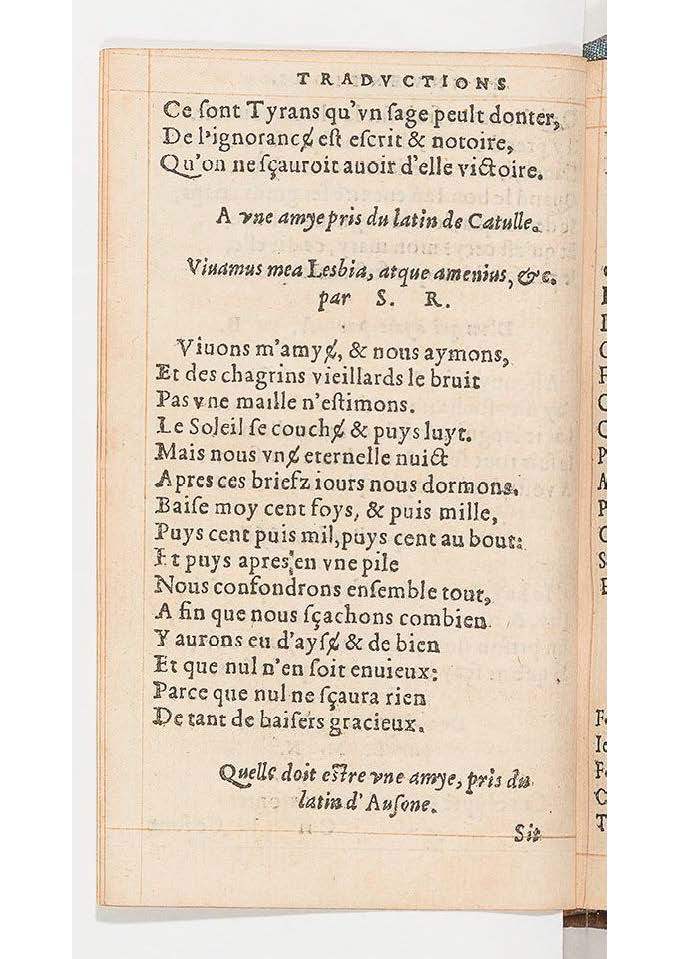 TRADVCTIONS
Ce ſont Tyrans qu'vn ſage peult donter,
De l'ignorancɇ eſt eſcrit & notoire,
Qu'on ne ſçauroit auoir d'elle victoire.
A vne amye pris du latin de Catulle.
Viuamus mea Lesbia, atque amenius, &c.
par S. R.
Viuons m'amyɇ, & nous aymons,
Et des chagrins vieillards le bruit
Pas vne maille n'eſtimons.
Le Soleil ſe couchɇ & puys luyt.
Mais nous vnɇ eternelle nuict
Apres ces briefz iours nous dormons.
Baiſe moy cent foys, & puis mille,
Puys cent puis mil, puys cent au bout:
Et puys apres en vne pile
Nous confondrons enſemble tout,
A fin que nous ſçachons combien
Y aurons eu d'ayſɇ & de bien
Et que nul n'en ſoit enuieux:
Parce que nul ne ſçaura rien
De tant de baiſers gracieux.
Quelle doit eſtre vne amye, pris du
latin d'Auſone.
Sit